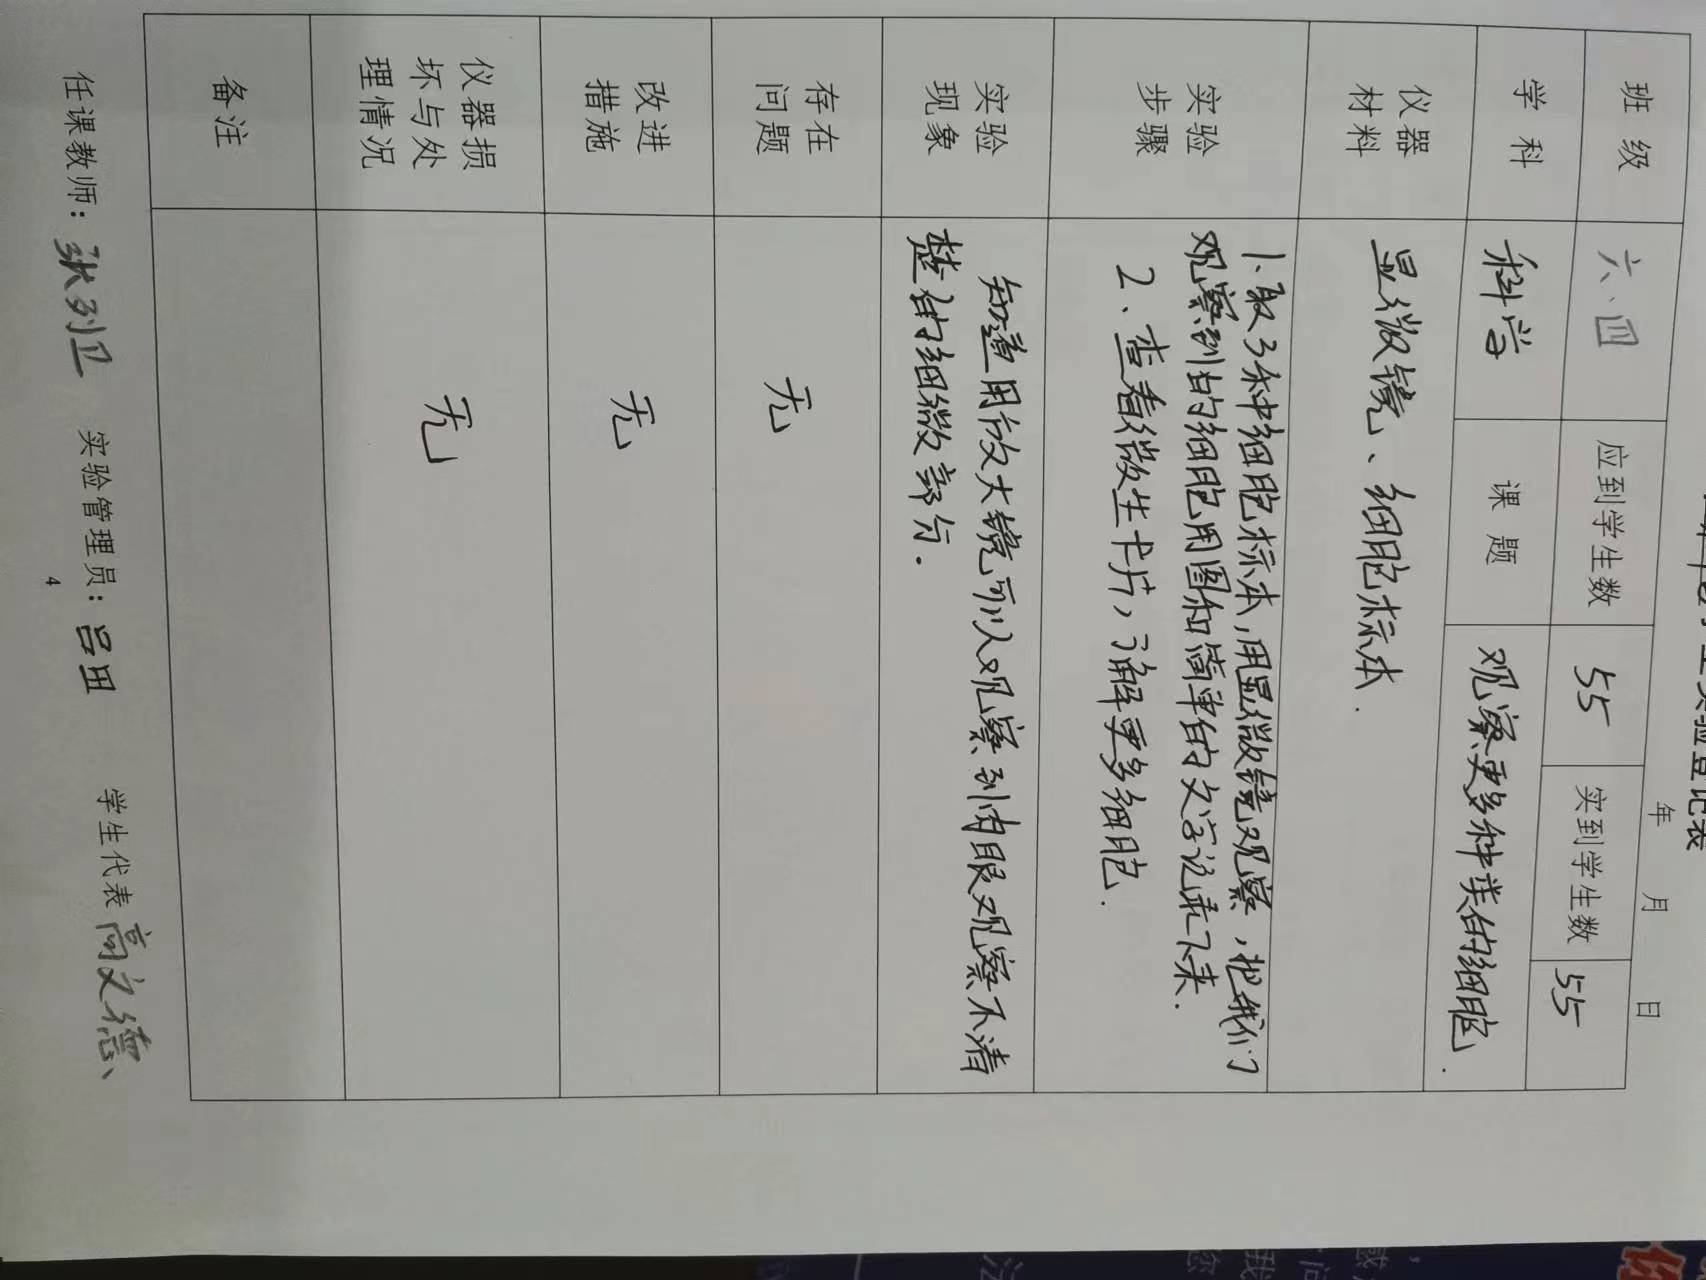 实验登记表
年 月 日
班级 六、四 应到学生数 55 实到学生数 55
学科 科学 课题 观察更多种类的细胞.
仪器
材料
显微镜、细胞标本.
实验
步骤
1.取3种细胞标本,用显微镜观察,把我们
观察到的细胞用图和简单的文字记录下来.
2、查看微生卡片,了解更多细胞.
实验
现象
知道用放大镜可以观察到肉眼观察不清
楚的细微部分.
存在
问题
无
改进
措施
无
仪器损
坏与处
理情况
无
备注
任课教师: 张列卫 实验管理员: 吕田 学生代表 高文德、
4